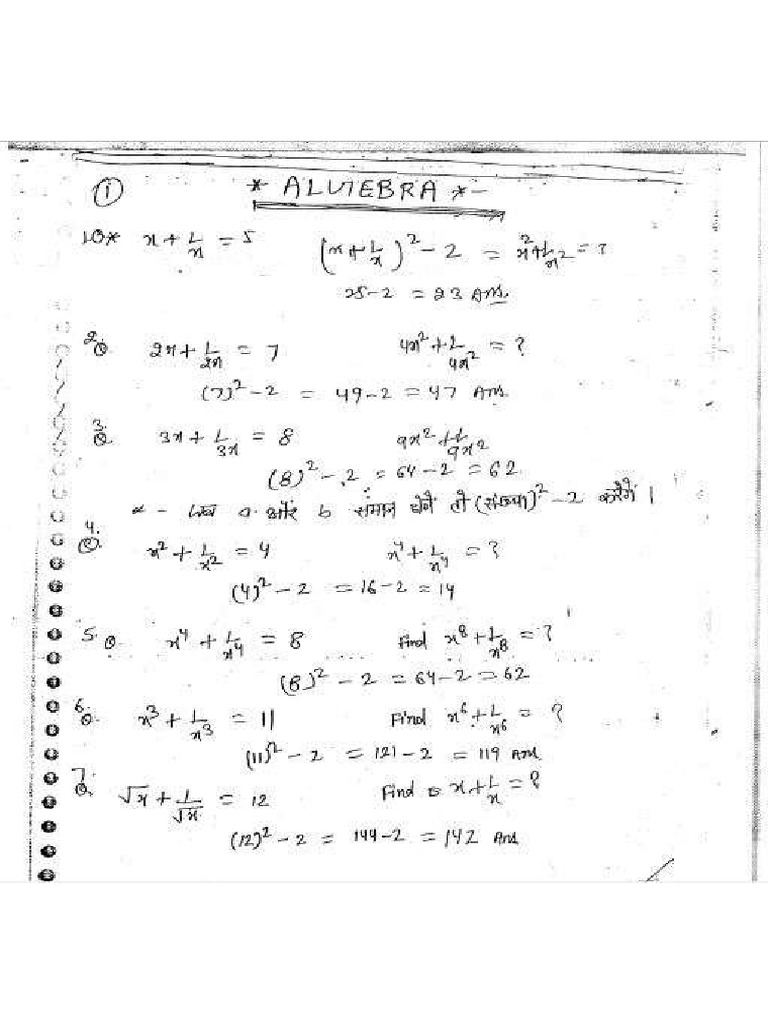 ① * ALGEBRA * -
1Q* x + 1/x = 5 (x + 1/x)² - 2 = x² + 1/x² = ?
25 - 2 = 23 Ans.
2. Q. 2x + 1/2x = 7 4x² + 1/4x² = ?
(7)² - 2 = 49 - 2 = 47 Ans
3. Q. 3x + 1/3x = 8 9x² + 1/9x²
(8)² - 2 = 64 - 2 = 62
* - जब a और b समान होगें तो (संख्या)² - 2 करेगें ।
4. Q. x² + 1/x² = 4 x⁴ + 1/x⁴ = ?
(4)² - 2 = 16 - 2 = 14
5. Q. x⁴ + 1/x⁴ = 8 Find x⁸ + 1/x⁸ = ?
(8)² - 2 = 64 - 2 = 62
6. Q. x³ + 1/x³ = 11 Find x⁶ + 1/x⁶ = ?
(11)² - 2 = 121 - 2 = 119 Ans
7. Q. √x + 1/√x = 12 Find x + 1/x = ?
(12)² - 2 = 144 - 2 = 142 Ans